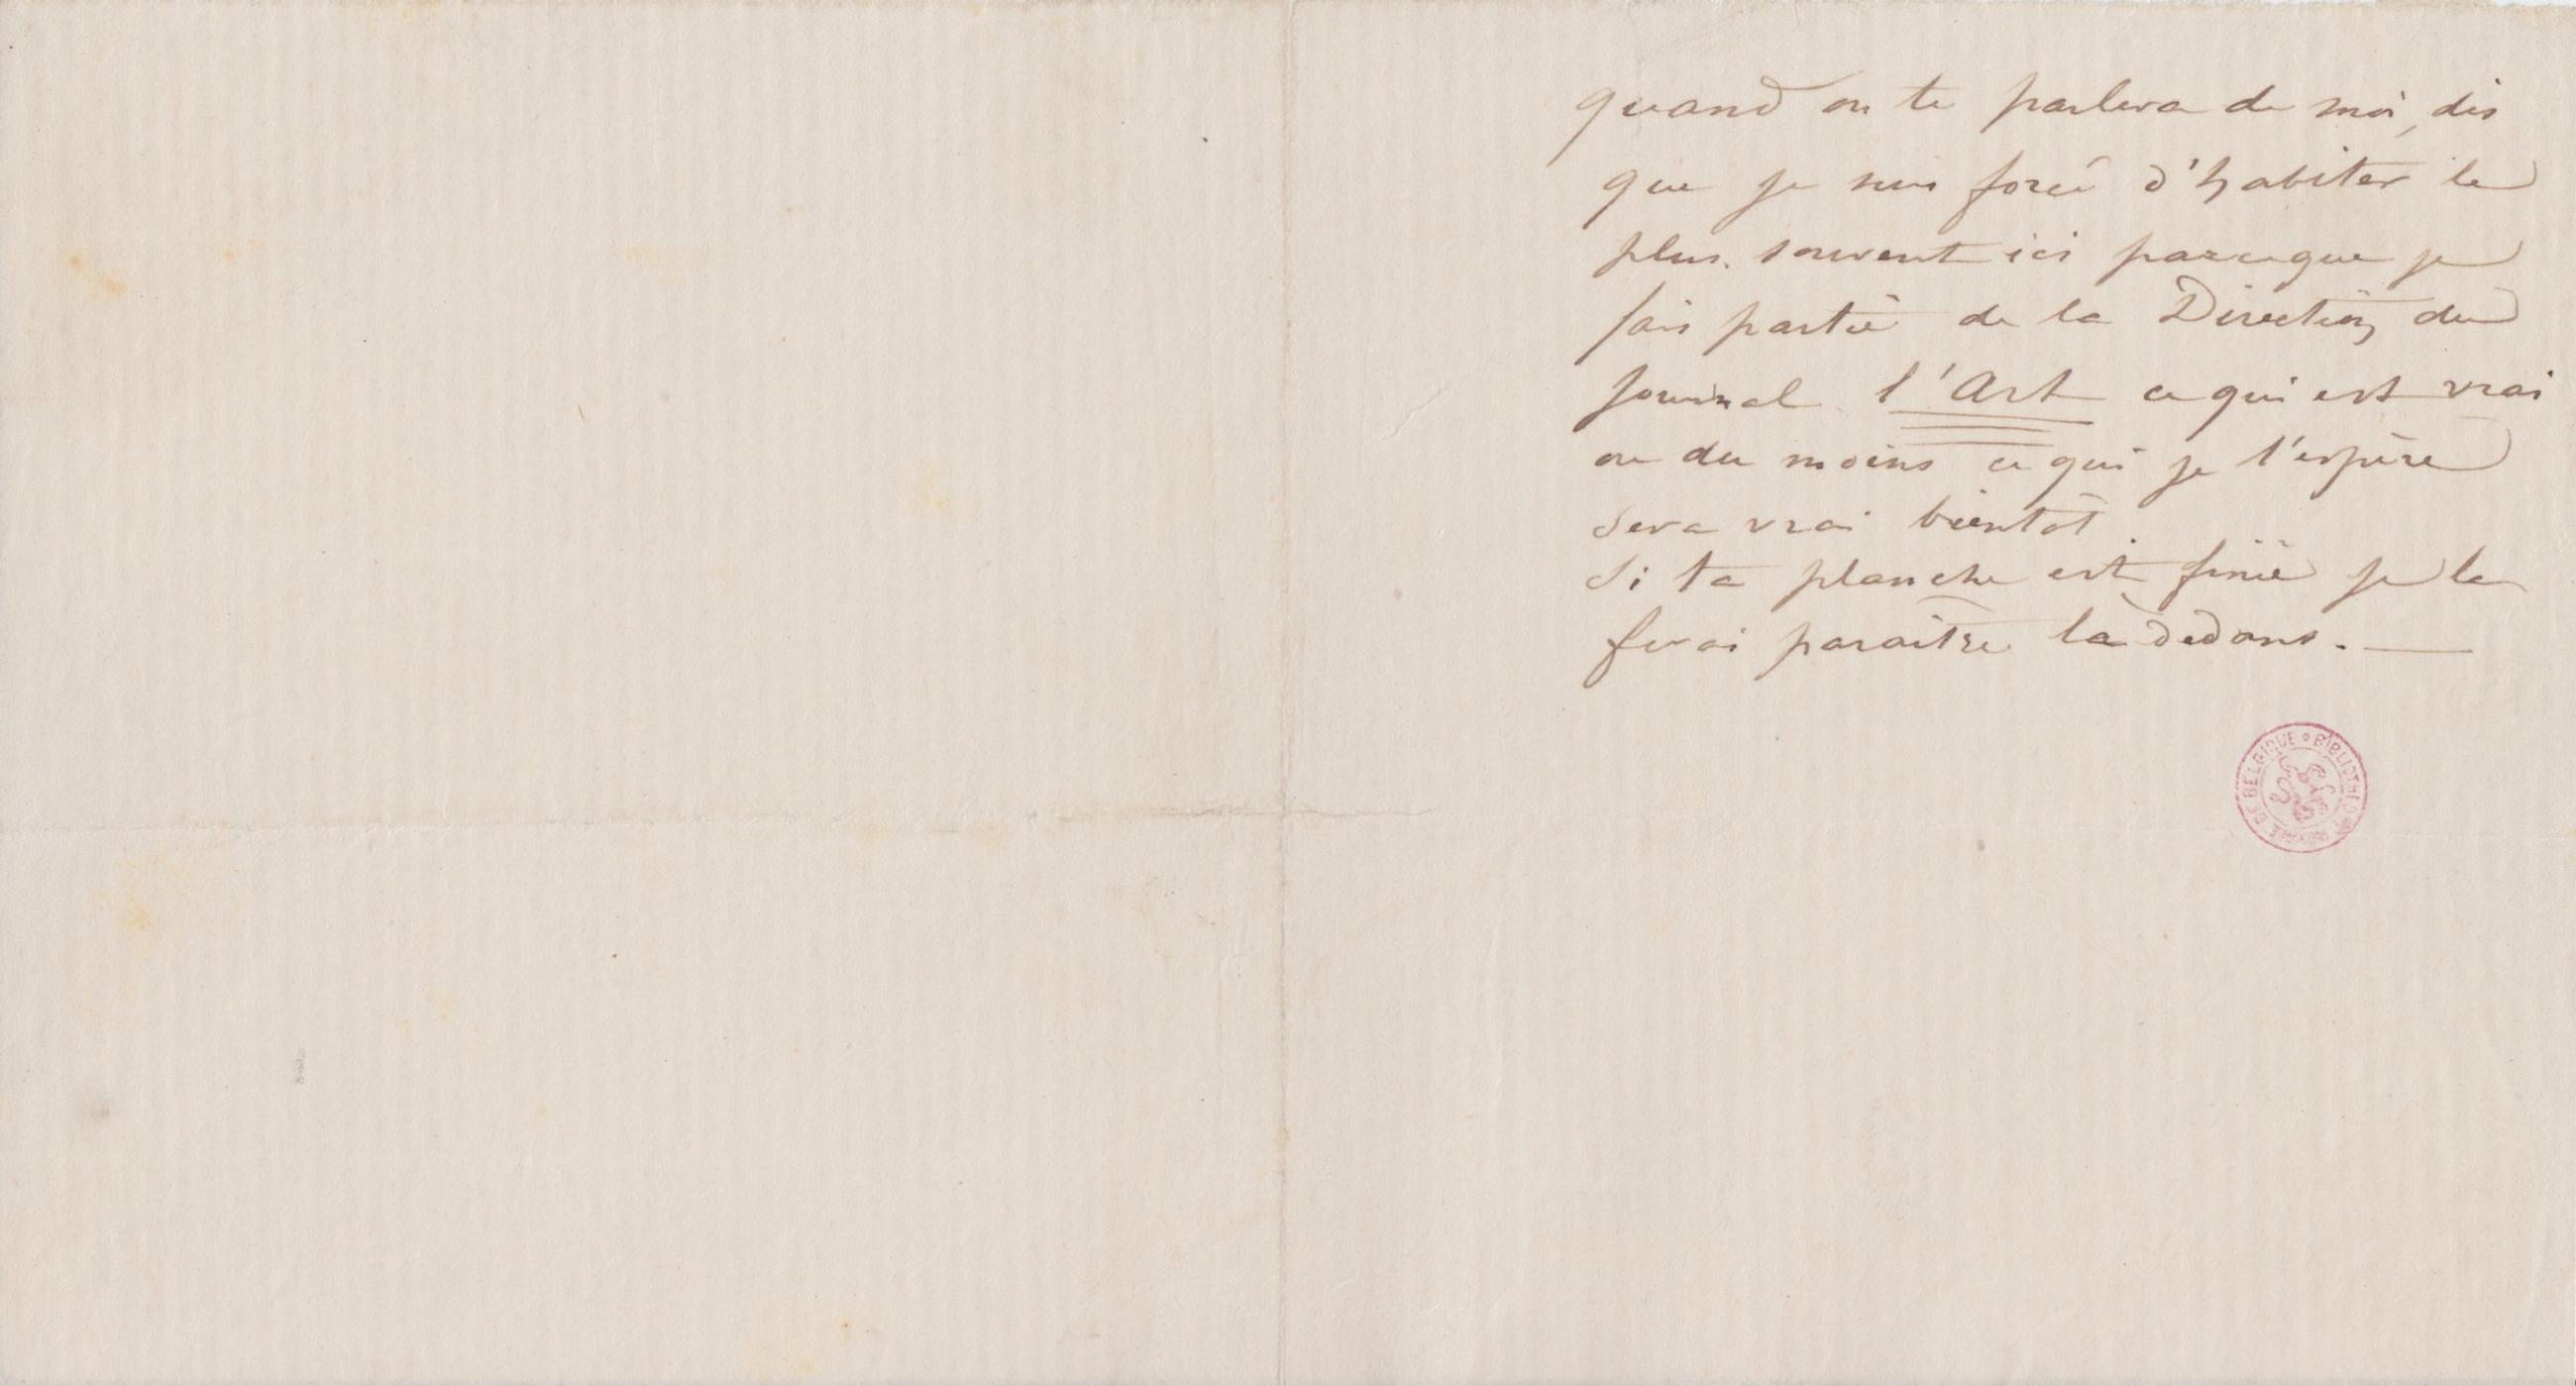 quand on te parlera de moi, dis
que je suis forcé d'habiter le
plus souvent ici parceque je
fais partie de la Direction du
journal l'Art ce qui est vrai
ou du moins ce qui je l'espère
sera vrai bientôt
Si ta planche est finie je la
ferai paraître là dedans. —
BIBLIOTHÈQUE ROYALE DE BELGIQUE